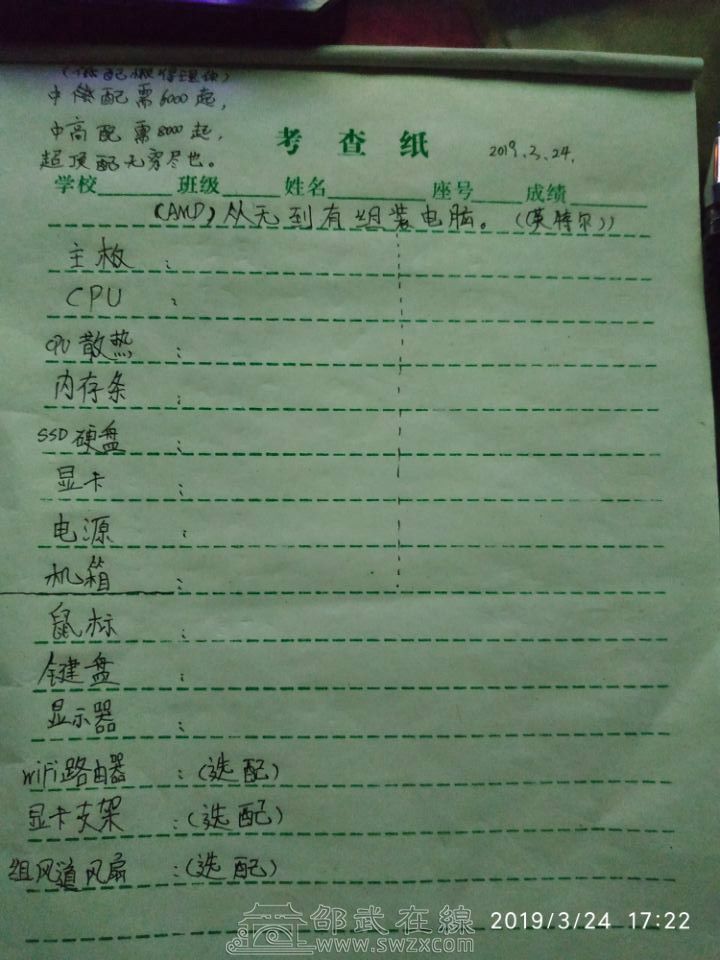 (低配懒得理你)
中等配需6000起，
中高配需8000起，
超顶配无穷尽也。
考查纸
2019.3.24.
学校 班级 姓名 座号 成绩
(AMD) 从无到有组装电脑。((英特尔))
主板：
CPU：
CPU散热：
内存条：
SSD硬盘：
显卡：
电源：
机箱：
鼠标：
键盘：
显示器：
WiFi路由器：(选配)
显卡支架：(选配)
组风道风扇：(选配)
邵武在線
www.swzxcom
2019/3/24 17:22